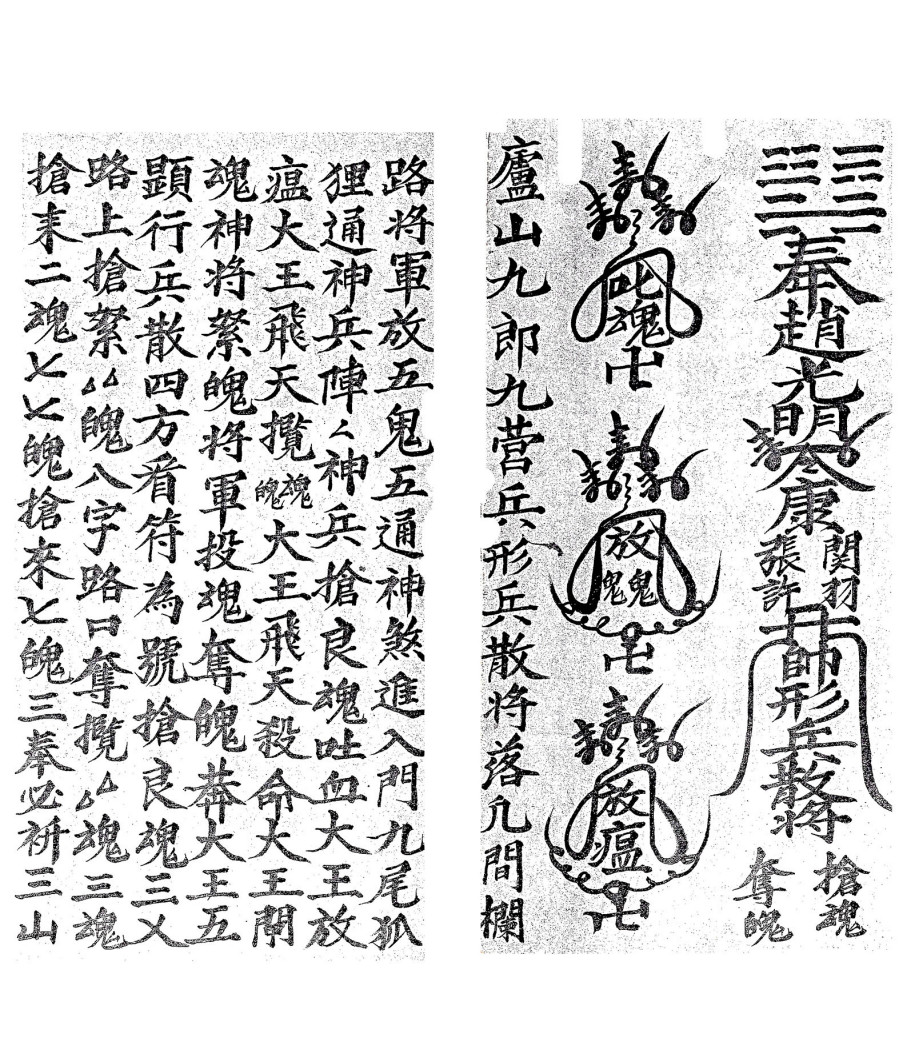 奉趙光明令康
関羽
張許
帥形兵散将
搶魂
奪魄
叱魂
卍
放鬼
卍
放瘟
卍
廬山九郎九营兵形兵散将落凡間欄
路将軍放五鬼五通神煞進入門九尾狐
狸通神兵陣く神兵搶良魂吐血大王放
瘟大王飛天攬魂魄大王飛天殺命大王開
魂神将絷魄将軍投魂奪魄莽大王五
顕行兵散四方看符為號搶良魂三乂
路上搶絷厶厶魄八字路口奪攬厶厶魂三魂
搶来二魂七七魄搶來七魄三奉必祈三山